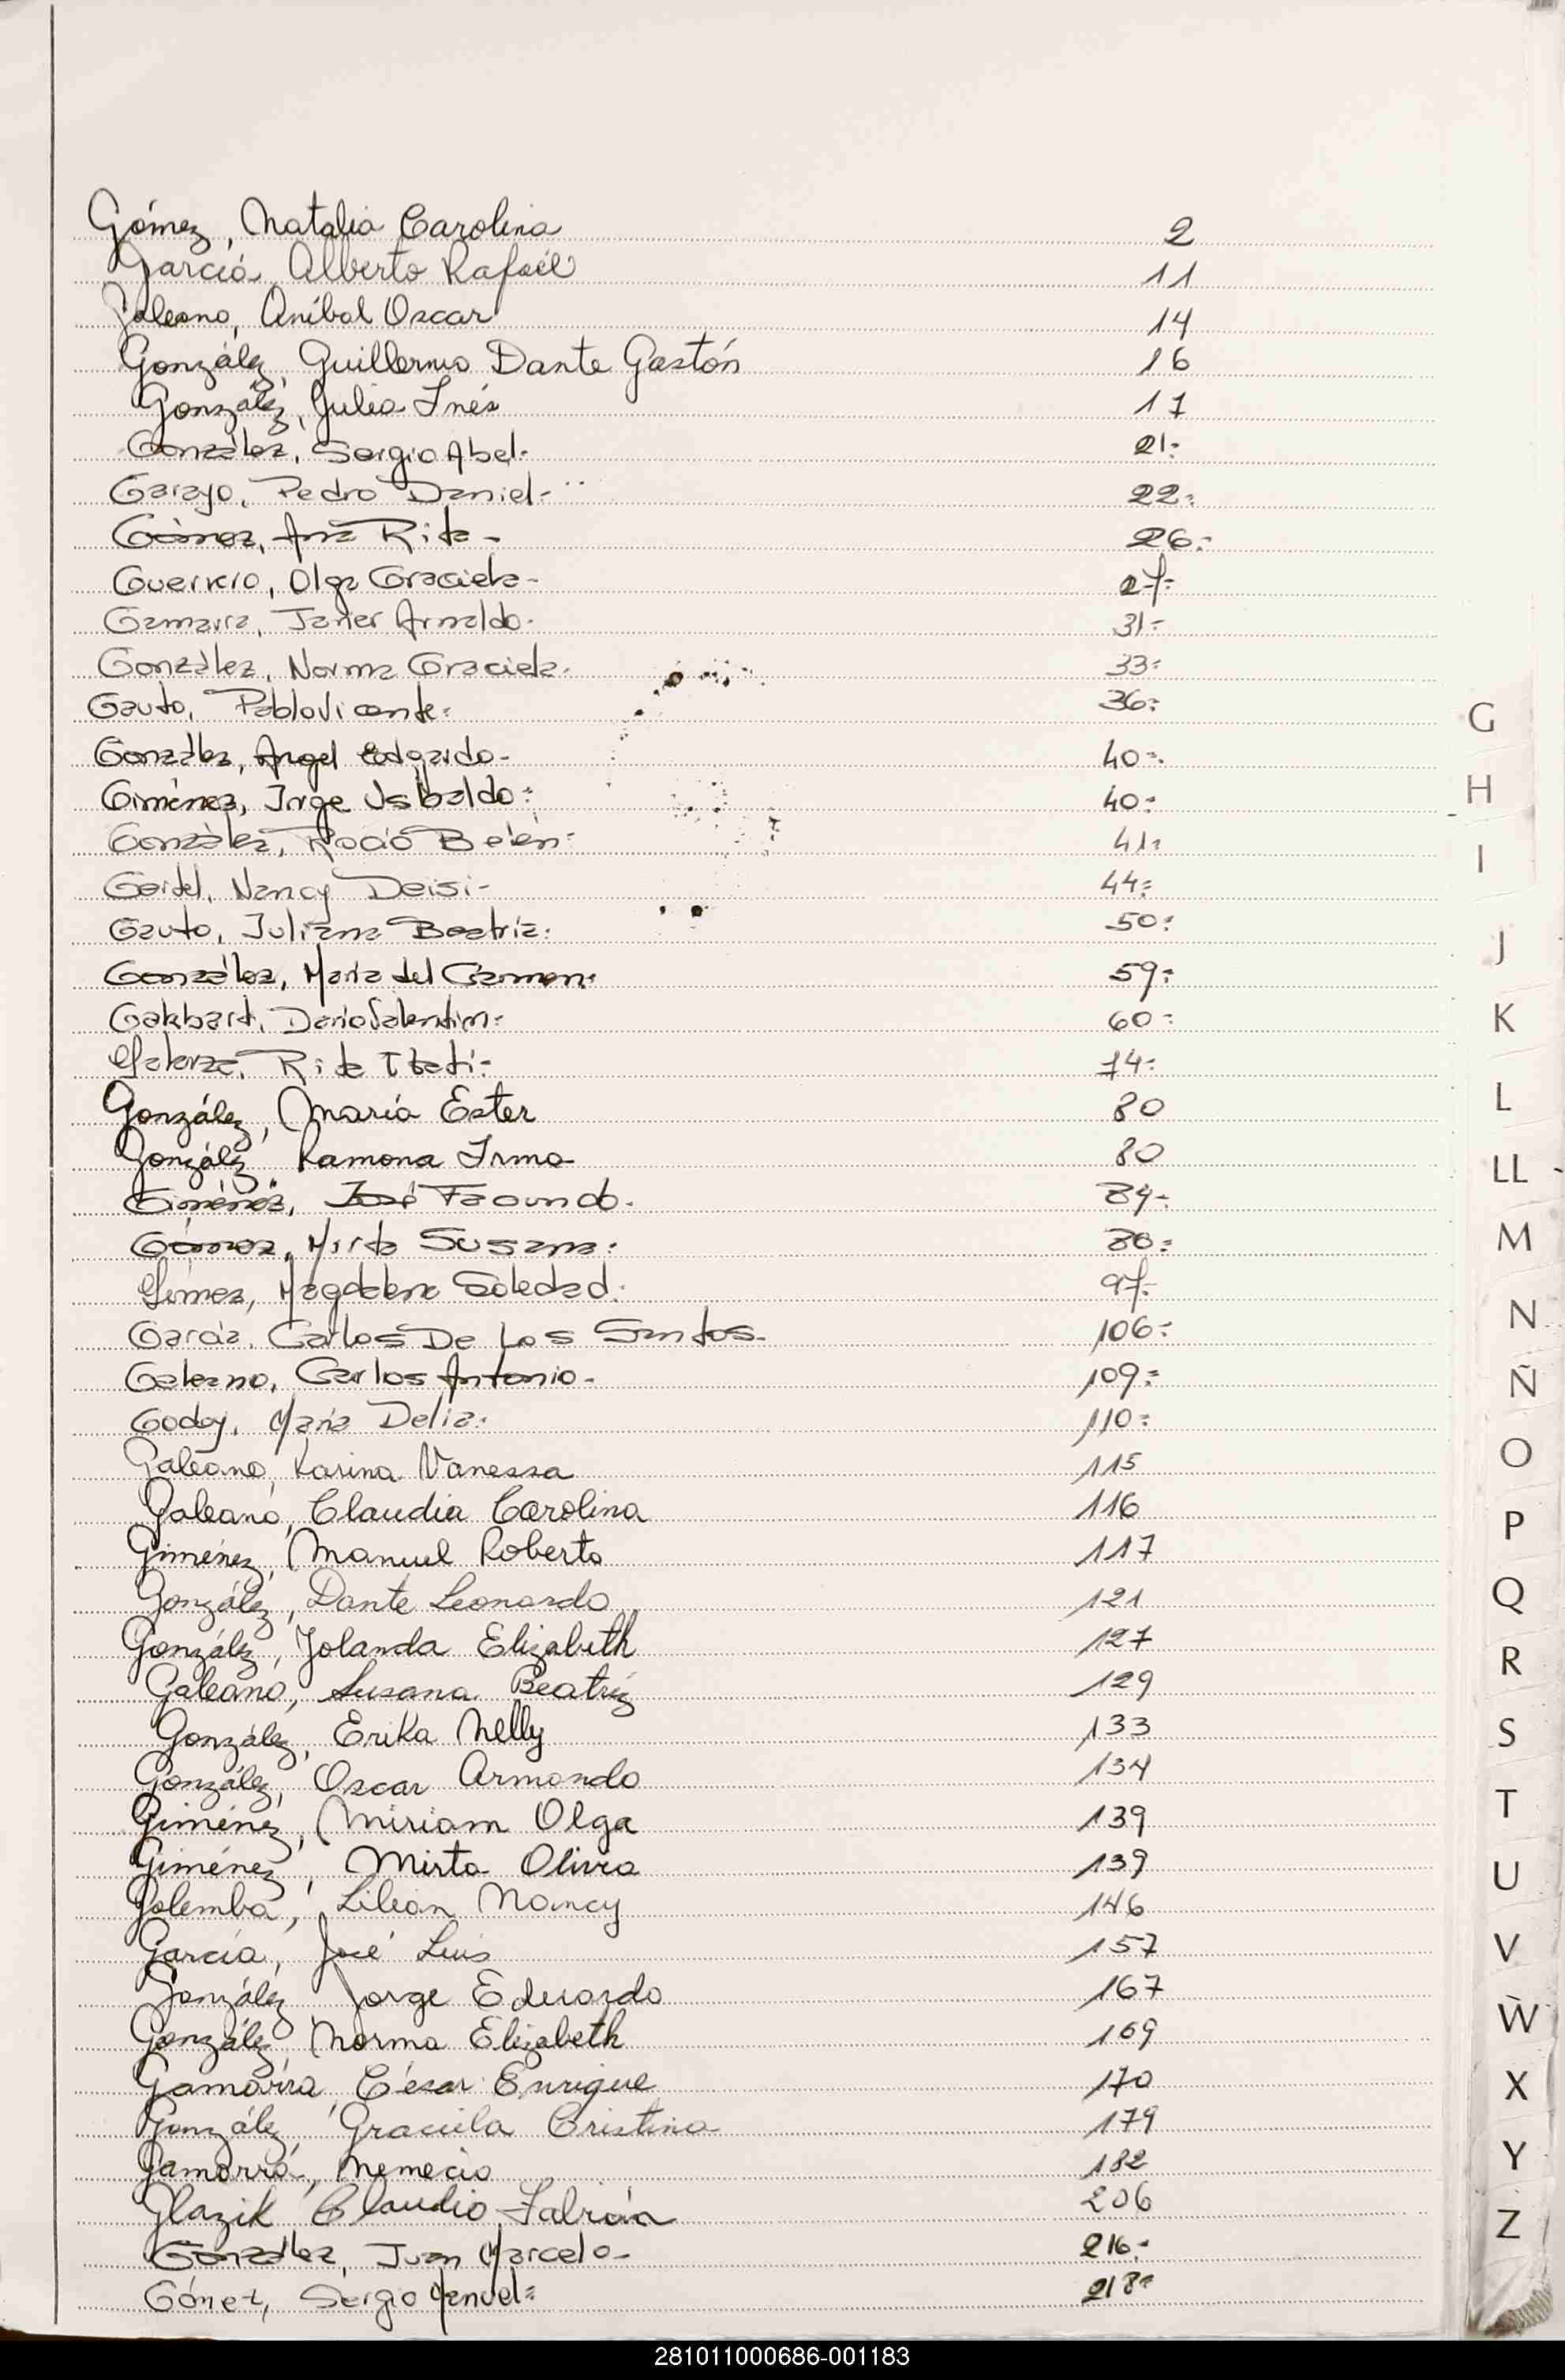 Gómez, Natalia Carolina 2
García, Alberto Rafael 11
Galeano, Aníbal Oscar 14
González, Guillermo Dante Gastón 16
González, Julia Inés 17
González, Sergio Abel.- 21:
Garayo, Pedro Daniel.- 22:
Gómez, Ana Rita - 26:
Guerrero, Olga Graciela - 27:
Gamarra, Javier Arnaldo. 31:
González, Norma Graciela. 33:
Gauto, Pablo Vicente: 36:
González, Angel Edgardo.- 40:
Giménez, Jorge Usbaldo: 40:
González, Rocío Belén: 41:
Gardel, Nancy Deisi- 44:
Gauto, Juliana Beatriz: 50:
González, María del Carmen: 59:
Darío Valentín: 60:
Rita Itatí: 74:
González, María Ester 80
González, Ramona Irma 80
Giménez, José Facundo. 84-
Gómez, Mirta Susana:
Gómez, Magdalena Soledad: 97:
García, Carlos De Los Santos. 106:
Galeano, Carlos Antonio- 109:
Godoy, María Delia: 110:
Galeano, Karina Vanessa 115
Galeano, Claudia Carolina 116
Giménez, Manuel Roberto 117
González, Dante Leonardo 121
González, Yolanda Elizabeth 127
Galeano, Susana Beatriz 129
González, Erika Nelly 133
González, Oscar Armando 134
Giménez, Miriam Olga 139
Giménez, Mirta Olivia 139
Golemba, Lilian Nancy 146
García, José Luis 157
González, Jorge Eduardo 167
González, Norma Elizabeth 169
Gamarra, César Enrique 170
González, Graciela Cristina 179
Gamarra, Nemecio 182
Glazik Claudio Fabián 206
González, Juan Marcelo- 216:
Gómez, Sergio Manuel: 218:
G
H
I
J
K
L
LL
M
N
Ñ
O
P
Q
R
S
T
U
V
W
X
Y
Z
281011000686-001183